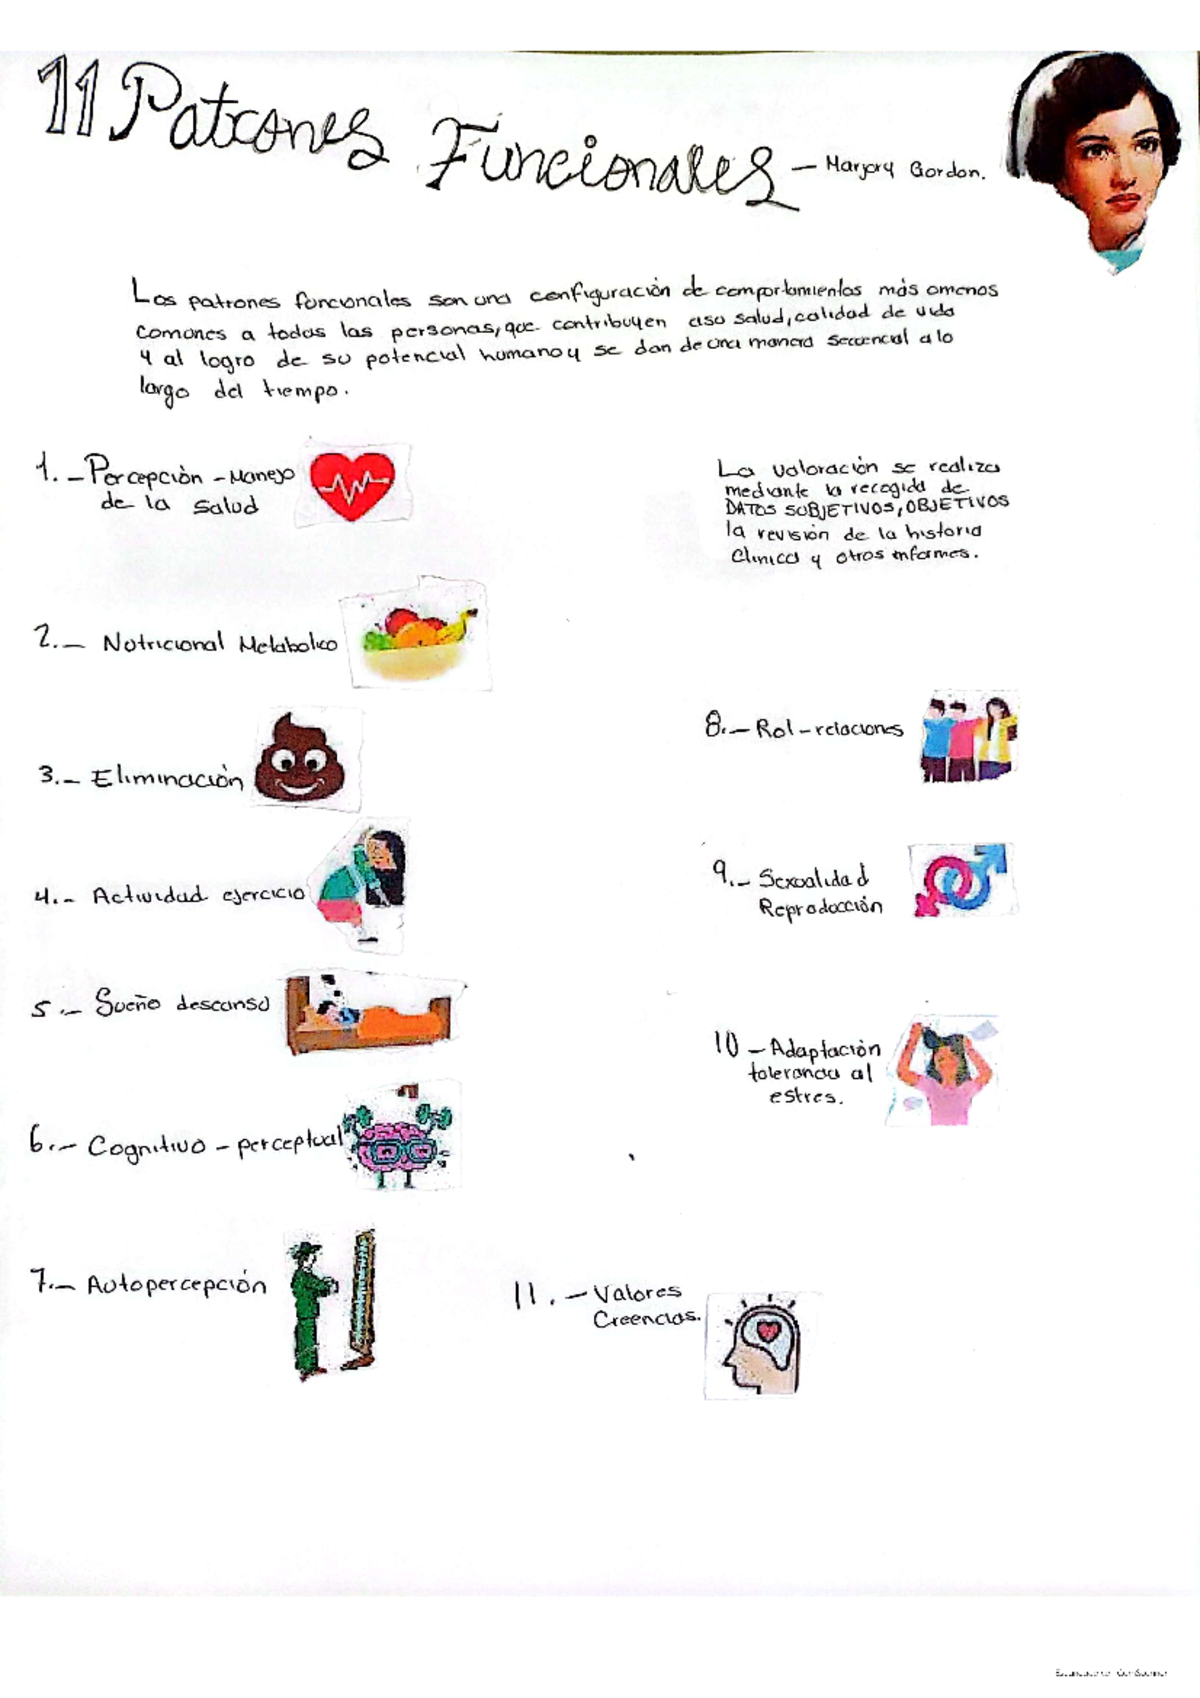 11 Patrones Funcionales — Marjory Gordon.
Los patrones funcionales son una configuración de comportamientos más o menos
comunes a todas las personas, que contribuyen a su salud, calidad de vida
y al logro de su potencial humano y se dan de una manera secuencial a lo
largo del tiempo.
1.- Percepción - Manejo
de la salud
La valoración se realiza
mediante la recogida de
DATOS SUBJETIVOS, OBJETIVOS
la revisión de la historia
Clinica y otros informes.
2.- Nutricional Metabolico
3.- Eliminación
4.- Actividad ejercicio
5.- Sueño descanso
6.- Cognitivo - perceptual
7.- Autopercepción
8.- Rol - relaciones
9.- Sexualidad
Reproducción
10 - Adaptación
tolerancia al
estres.
11.- Valores
Creencias.